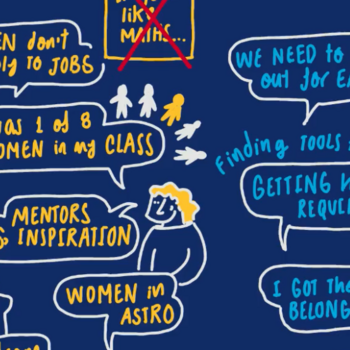 like
MATHS...
EN don't
PLY TO JOBS
WAS 1 of 8
WOMEN in my CLASS
MENTORS
INSPIRATION
WOMEN in
ASTRO
WE NEED to
OUT for
Finding TOOLS
GETTING
I GOT The
BELONG